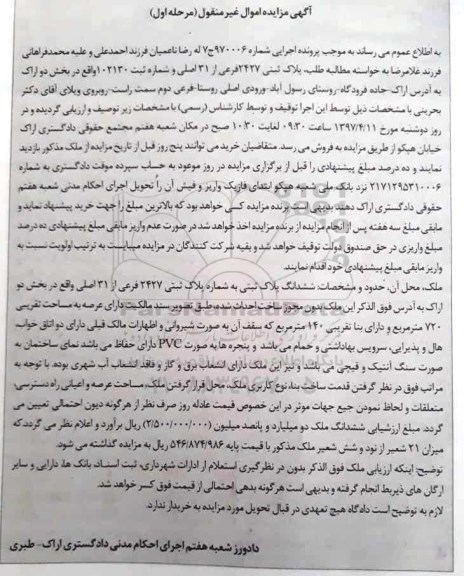 آگهی مزایده اموال غیر منقول (مرحله اول)
به اطلاع عموم می رساند به موجب پرونده اجرایی شماره ۹۷۰۰۰۶ج۷ له رضا ناعمیان فرزند احمدعلی و علیه محمدفراهانی
فرزند غلامرضا به خواسته مطالبه طلب، پلاک ثبتی ۲۴۲۷فرعی از ۳۱ اصلی و شماره ثبت ۱۰۲۱۳۰واقع در بخش دو اراک
به آدرس اراک-جاده فرودگاه-روستای رسول آباد-ورودی اصلی روستا-فرعی دوم سمت راست-روبروی ویلای آقای دکتر
بحرینی با مشخصات ذیل توسط این اجرا توقیف و توسط کارشناس (رسمی) با مشخصات زیر توصیف و ارزیابی گردیده و در
روز دوشنبه مورخ ۱۳۹۷/۴/۱۱ ساعت ۰۹:۳۰ لغایت ۱۰:۳۰ صبح در مکان شعبه هفتم مجتمع حقوقی دادگستری اراک
خیابان هپکو از طریق مزایده به فروش می رسد. متقاضیان خرید می توانند پنج روز قبل از تاریخ مزایده از ملک مذکور بازدید
نمایند و ده درصد مبلغ پیشنهادی را قبل از برگزاری مزایده در روز موعود به حساب سپرده موقت دادگستری به شماره
۲۱۷۱۲۹۵۳۱۰۰۰۶ نزد بانک ملی شعبه هپکو ابتدای فازیک واریز و فیش آن را تحویل اجرای احکام مدنی شعبه هفتم
حقوقی دادگستری اراک دهند بدیهی است برنده مزایده کسی خواهد بود که بالاترین مبلغ را جهت خرید پیشنهاد نماید و
مابقی مبلغ سه هفته پس از انجام مزایده از برنده مزایده اخذ خواهد شد در صورت عدم واریز مابقی مبلغ پیشنهادی ده درصد
مبلغ واریزی در حق صندوق دولت توقیف خواهد شد و بقیه شرکت کنندگان در مزایده میبایست به ترتیب اولویت نسبت به
واریز مابقی مبلغ پیشنهادی خود اقدام نمایند.
ملک، محل آن، حدود و مشخصات: ششدانگ پلاک ثبتی به شماره پلاک ثبتی ۲۴۲۷ فرعی از ۳۱ اصلی واقع در بخش دو
اراک به آدرس فوق الذکر این ملک بدون مجوز ساخت احداث شده، طبق تصویر سند مالکیت دارای عرصه به مساحت تقریبی
۷۲۰ مترمربع و دارای بنا تقریبی ۱۴۰ مترمربع که سقف آن به صورت شیروانی و اظهارات مالک قبلی دارای دو اتاق خواب،
هال و پذیرایی، سرویس بهداشتی و حمام می باشد و پنجره ها به صورت PVC دارای حفاظ می باشد نمای ساختمان به
صورت سنگ آنتیک و قیچی می باشد و نیز این ملک دارای انشعاب برق و گاز و فاقد انشعاب آب شهری بوده. با توجه به
مراتب فوق در نظر گرفتن قدمت ساخت بنا، نوع کاربری ملک، محل قرار گرفتن ملک، مساحت عرصه و اعیانی راه دسترسی،
متعلقات و لحاظ نمودن جمیع جهات موثر در این خصوص قیمت عادله روز صرف نظر از هرگونه دیون احتمالی تعیین می
گردد. مبلغ ارزشیابی ششدانگ ملک دو میلیارد و پانصد میلیون (۲/۵۰۰/۰۰۰/۰۰۰) ریال برآورد و اعلام نظر می گردد.که
میزان ۲۱ شعیر از نود و شش شعیر ملک مذکور با قیمت پایه ۵۴۶/۸۷۴/۹۸۶ ریال به مزایده گذاشته می شود.
توضیح: اینکه ارزیابی ملک فوق الذکر بدون در نظرگیری استعلام از ادارات شهرداری، ثبت اسناد، بانک ها، دارایی و سایر
ارگان های ذیربط انجام گرفته و بدیهی است هرگونه بدهی احتمالی از قیمت فوق کسر خواهد شد.
لازم به توضیح است دادگاه هیچ تعهدی در قبال تحویل مورد مزایده به خریدار ندارد.
دادورز شعبه هفتم اجرای احکام مدنی دادگستری اراک - طبری